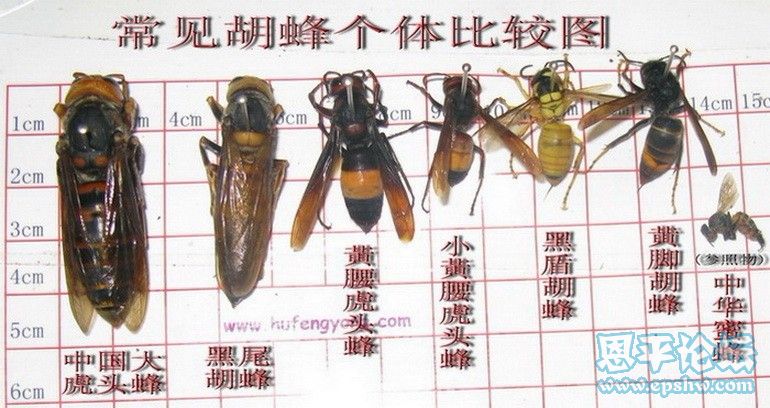 常见胡蜂个体比较图
1cm
4cm
14cm
15c
2cm
3cm
4cm
5cm
6cm
中国大
虎头蜂
黑尾
胡蜂
黄腰虎头蜂
小黄腰虎头蜂
黑盾胡蜂
黄脚胡蜂
(参照物)
中华蜜蜂
恩平论坛
www.epshw.com